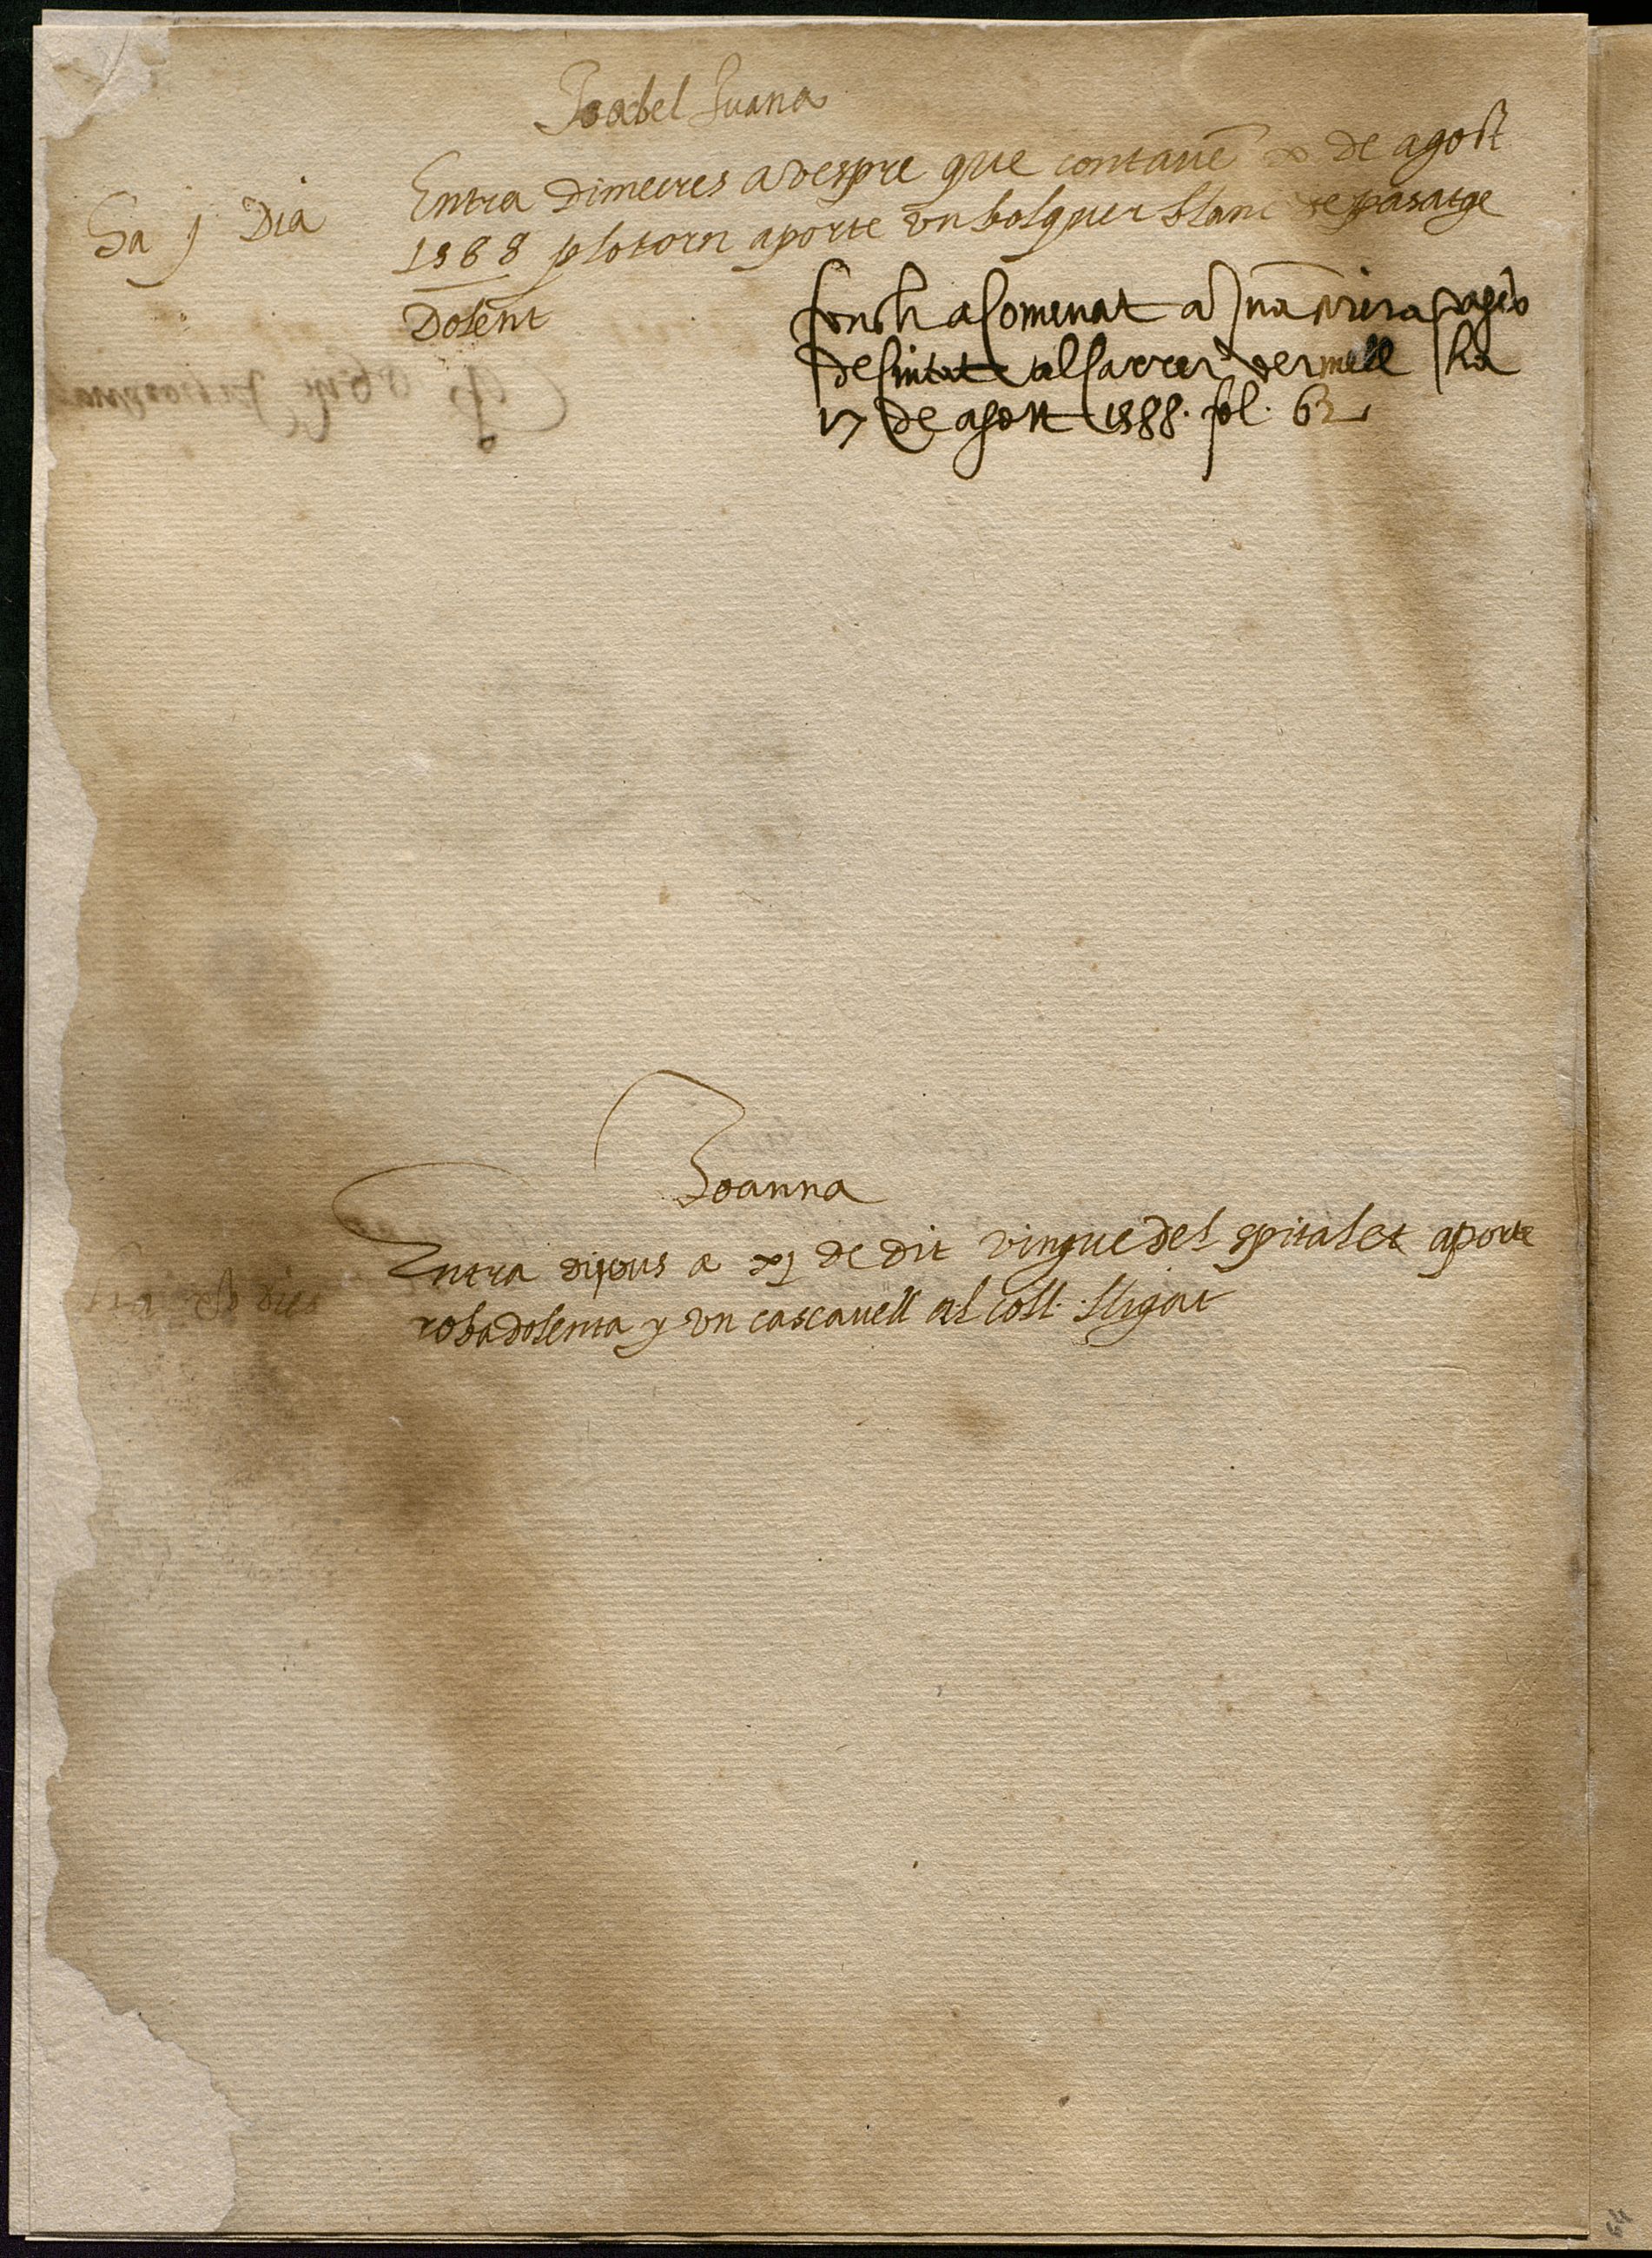 Isabel Juana
Ha j Dia
Entra Dimecres a vespre que contauẽ x de agost
1588 plo torn aporte vn bolquer blanc de pasatge
Dolent
fonch acomenat a
de al carrer vermell ha
17 de agost 1588. fol. 62
Joanna
Entra dijous a xj de dit vingue del spitalet aporte
roba dolenta y vn cascauell al coll lligat
Ha dies
64